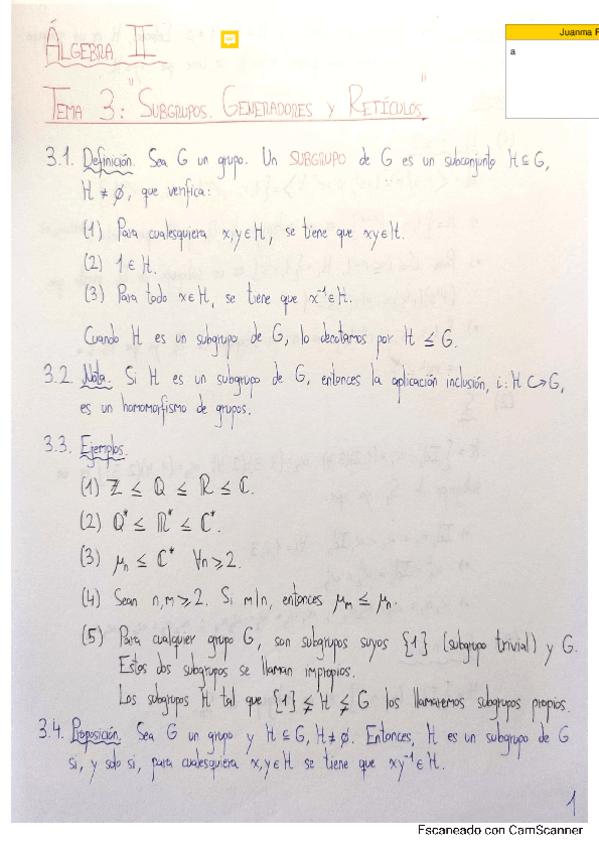 ÁLGEBRA II
Juanma
a
TEMA 3: "SUBGRUPOS. GENERADORES Y RETÍCULOS"
3.1. Definición. Sea G un grupo. Un SUBGRUPO de G es un subconjunto H ⊆ G,
H ≠ ∅, que verifica:
(1) Para cualesquiera x,y ∈ H, se tiene que xy ∈ H.
(2) 1 ∈ H.
(3) Para todo x ∈ H, se tiene que x⁻¹ ∈ H.
Cuando H es un subgrupo de G, lo denotamos por H ≤ G.
3.2. Nota. Si H es un subgrupo de G, entonces la aplicación inclusión, i: H ↪ G,
es un homomorfismo de grupos.
3.3. Ejemplos.
(1) ℤ ≤ ℚ ≤ ℝ ≤ ℂ.
(2) ℚ* ≤ ℝ* ≤ ℂ*.
(3) μₙ ≤ ℂ* ∀n ≥ 2.
(4) Sean n,m ≥ 2. Si m|n, entonces μₘ ≤ μₙ.
(5) Para cualquier grupo G, son subgrupos suyos {1} (subgrupo trivial) y G.
Estos dos subgrupos se llaman impropios.
Los subgrupos H tal que {1} ≨ H ≨ G los llamaremos subgrupos propios.
3.4. Proposición. Sea G un grupo y H ⊆ G, H ≠ ∅. Entonces, H es un subgrupo de G
si, y solo si, para cualesquiera x,y ∈ H se tiene que xy⁻¹ ∈ H.
1
Escaneado con CamScanner